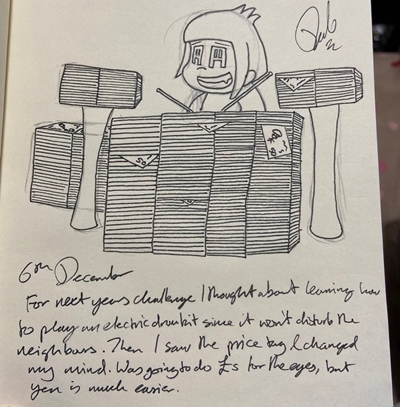 6th December
For next years challenge I thought about learning how
to play an electric drumkit since it won't disturb the
neighbours. Then I saw the price tag & changed
my mind. Was going to do £s for the eyes, but
yen is much easier.